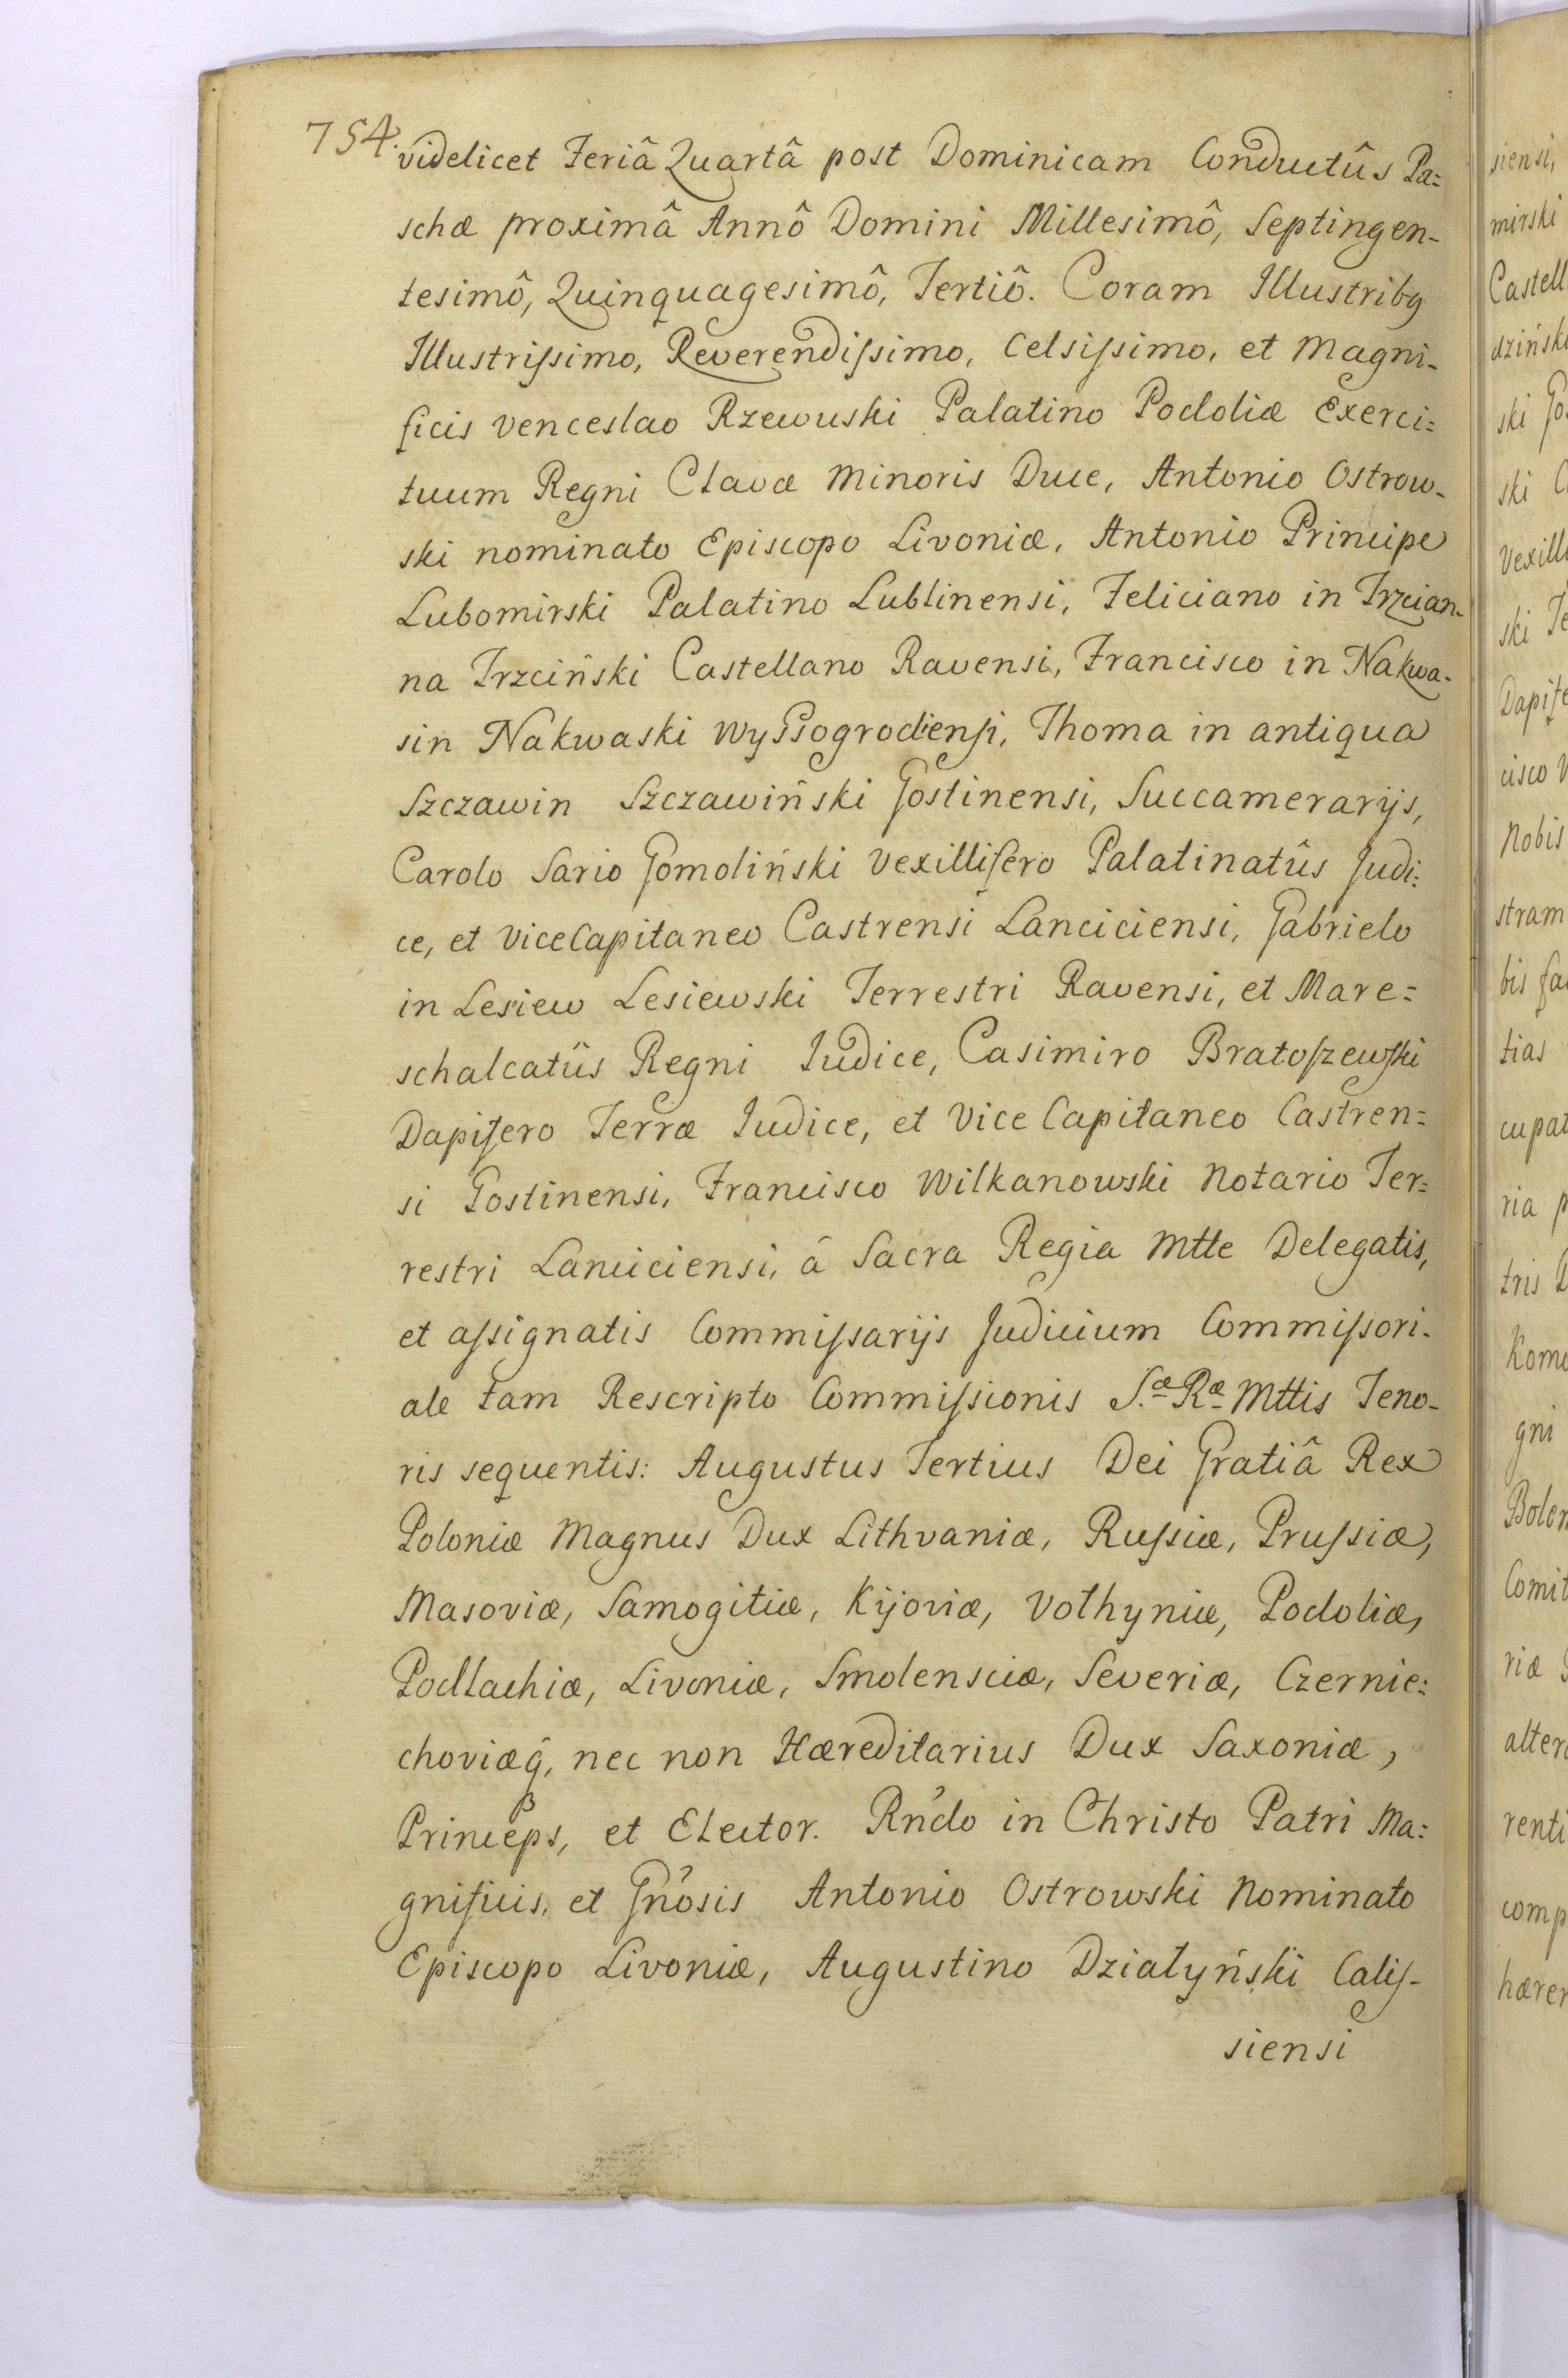 754.
videlicet Feriâ Quartâ post Dominicam Conductûs Pa=
schæ proximâ Annô Domini Millesimô, Septingen-
tesimô, Quinquagesimô, Tertiô. Coram Illustribq
Illustriſsimo, Reverendiſsimo, Celsiſsimo, et Magni-
ficis Venceslao Rzewuski Palatino Podoliæ Exerci=
tuum Regni Clavæ Minoris Duce, Antonio Ostrow-
ski nominato Episcopo Livoniæ, Antonio Principe
Lubomirski Palatino Lublinensi, Feliciano in Trzcian-
na Trzciński Castellano Ravensi, Francisco in Nakwa-
sin Nakwaski Wyssogrodienſi, Thoma in antiqua
Szczawin Szczawiński Gostinensi, Succamerarijs,
Carolo Sario Gomoliński Vexillifero Palatinatûs Judi:
ce, et ViceCapitaneo Castrensi Lanciciensi, Gabrielo
in Lesiew Lesiewski Terrestri Ravensi, et Mare=
schalcatûs Regni Iudice, Casimiro Bratoſzewſki
Dapifero Terræ Iudice, et Vice Capitaneo Castren=
si Gostinensi, Francisco Wilkanowski Notario Ter=
restri Lanciciensi, â Sacra Regia Mtte Delegatis,
et aſsignatis Commiſsarijs Judicium Commiſsori-
ale tam Rescripto Commiſsionis S.æ Ræ Mttis Teno-
ris sequentis: Augustus Tertius Dei Gratiâ Rex
Poloniæ Magnus Dux Lithvaniæ, Ruſsiæ, Pruſsiæ,
Masoviæ, Samogitiæ, Kijoviæ, Volhyniæ, Podoliæ,
Podlachiæ, Livoniæ, Smolensciæ, Severiæ, Czernie=
choviæq̂, nec non Hæreditarius Dux Saxoniæ,
Princeps, et Elector. Rńdo in Christo Patri Ma=
gnificis, et Gńosis Antonio Ostrowski Nominato
Episcopo Livoniæ, Augustino Działyński Caliſ-
siensi
siensi,
mirski
Castell
dzińsk
ski Go
ski C
Vexill
ski Te
Dapife
cisco
Nobis
stram
bis fa
tias
cupat
ria p
tris
Kom
gni
Bolen
Comit
riæ
alter
renti
comp
hæren